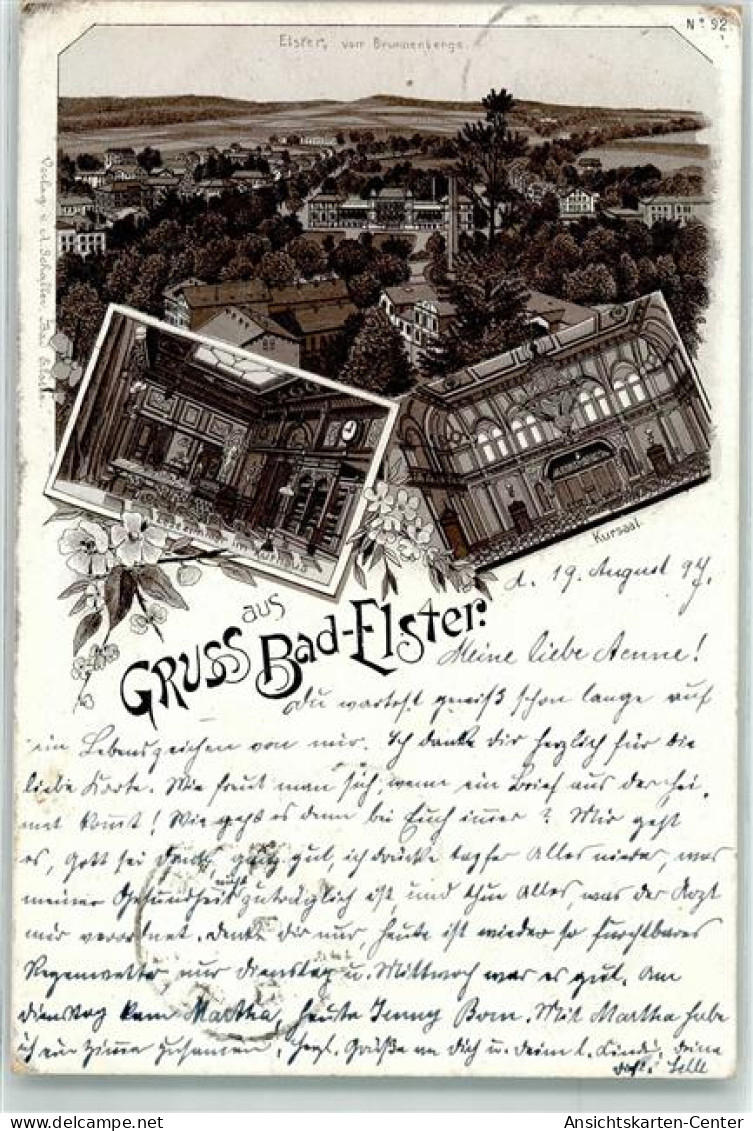 Nº 92
Elster, vom Brunnenberge.
Verlag v. A. Schaller, Bad Elster.
Lesezimmer im Kurhaus
Kursaal.
GRUSS aus Bad-Elster.
d. 19. August 97.
Meine liebe Aenne!
Du wartest gewiß schon lange auf
ein Lebenszeichen von mir. Ich danke Dir herzlich für die
liebe Karte. Wie freut man sich, wenn ein Brief aus der Hei-
mat kommt! Wie geht es denn bei Euch immer? Mir geht
es, Gott sei Dank, ganz gut, ich drücke tapfer Alles nieder, was
meiner Gesundheit nicht zuträglich ist und thue Alles, was der Arzt
mir verordnet. Denke dir nur, heute ist wieder so furchtbares
Regenwetter nur Dienstag u. Mittwoch war es gut. Am
Dienstag kam Martha, heute Jenny Born. Mit Martha habe
ich ein Zimmer zusammen, herzl. Grüße an Dich u. Deine l. Kinder, Deine
Ansichtskarten-Center